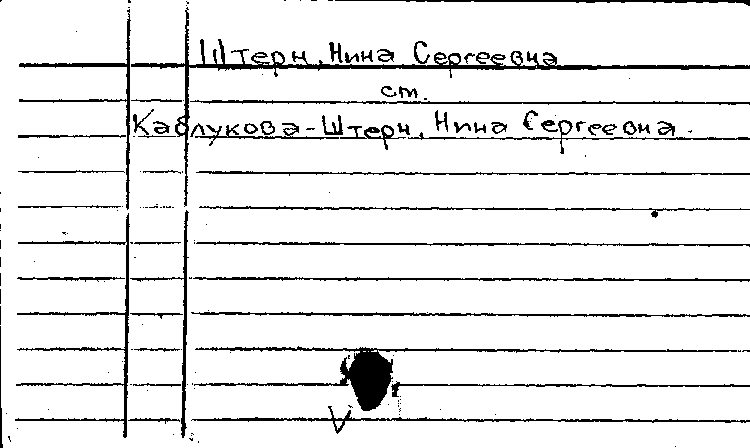 Штерн, Нина Сергеевна
см.
Каблукова-Штерн, Нина Сергеевна.
V